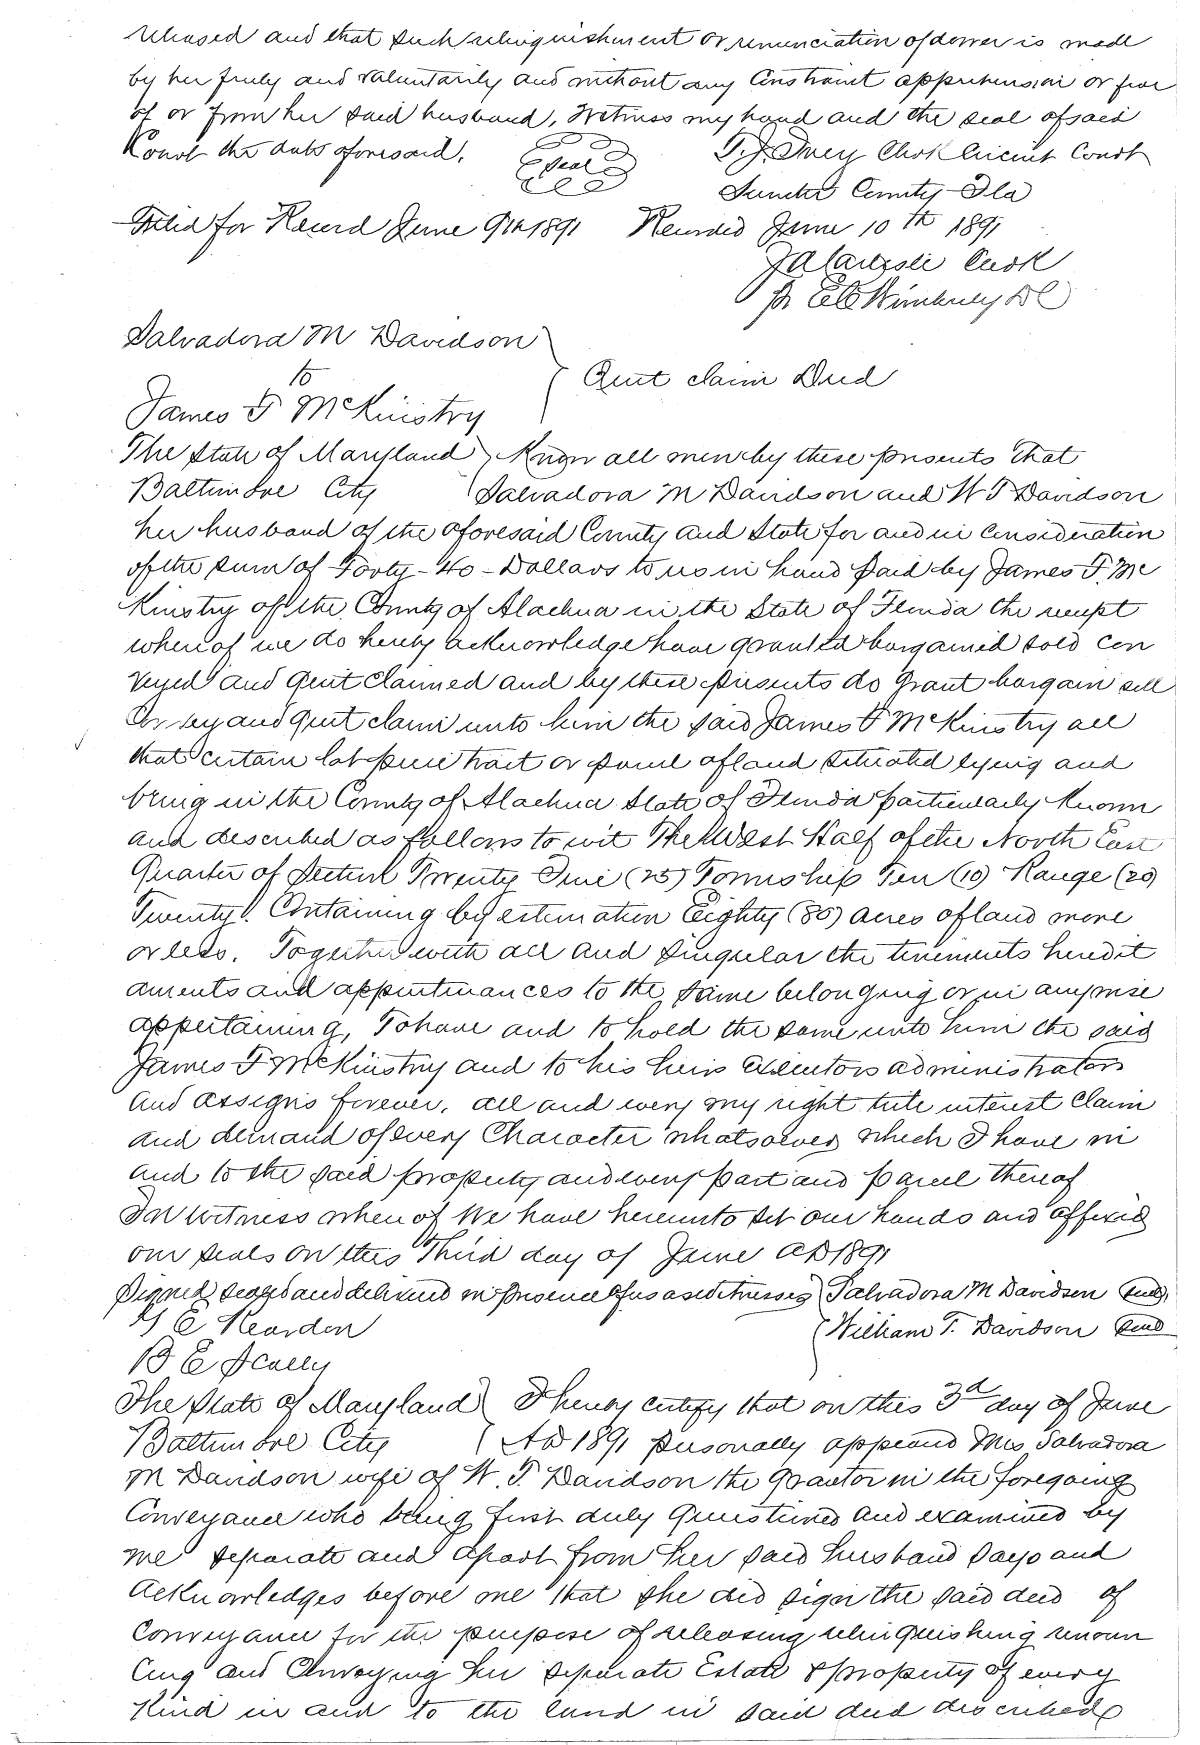 released and that such relinquishment or renunciation of dower is made
by her freely and voluntarily and without any Constraint apprehension or fear
of or from her said husband. Witness my hand and the seal of said
Court the date aforesaid. Seal T. J. Ivey Clerk Circuit Court
Sumter County Fla
Filed for Record June 9th 1891 Recorded June 10th 1891
J A Carlisle Clerk
pr E C Wimberly D C
Salvadora M Davidson
to Quit claim Deed
James F McKinstry
The State of Maryland Know all men by these presents That
Baltimore City Salvadora M Davidson and W T Davidson
her husband of the aforesaid County and State for and in Consideration
of the sum of Forty - 40 - Dollars to us in hand paid by James F. Mc
Kinstry of the County of Alachua in the State of Florida the receipt
whereof we do hereby acknowledge have granted bargained sold con
veyed and quit claimed and by these presents do grant bargain sell
Convey and quit claim unto him the said James F McKinstry all
that certain lot piece tract or parcel of land situated lying and
being in the County of Alachua State of Florida particularly known
and described as follows to wit The West Half of the North East
Quarter of Section Twenty Five (25) Township Ten (10) Range (20)
Twenty. Containing by estimation Eighty (80) acres of land more
or less. Together with all and singular the tenements heredit
aments and appurtenances to the same belonging or in anywise
appertaining, To have and to hold the same unto him the said
James F McKinstry and to his heirs executors administrators
and assigns forever. all and every my right title interest claim
and demand of every Character whatsoever which I have in
and to the said property and every part and parcel thereof
In Witness whereof We have hereunto set our hands and affixed
our seals on this Third day of June AD 1891
Signed sealed and delivered in presence of us as witnesses Salvadora M Davidson Seal
E Reardon William T. Davidson Seal
B E Scally
The State of Maryland I hereby certify that on this 3d day of June
Baltimore City AD 1891 personally appeared Mrs Salvadora
M Davidson wife of W. T. Davidson the grantor in the foregoing
Conveyance who being first duly questioned and examined by
me separate and apart from her said husband says and
acknowledges before me that she did sign the said deed of
Conveyance for the purpose of releasing relinquishing renoun
cing and Conveying her separate Estate & property of every
kind in and to the land in said deed described